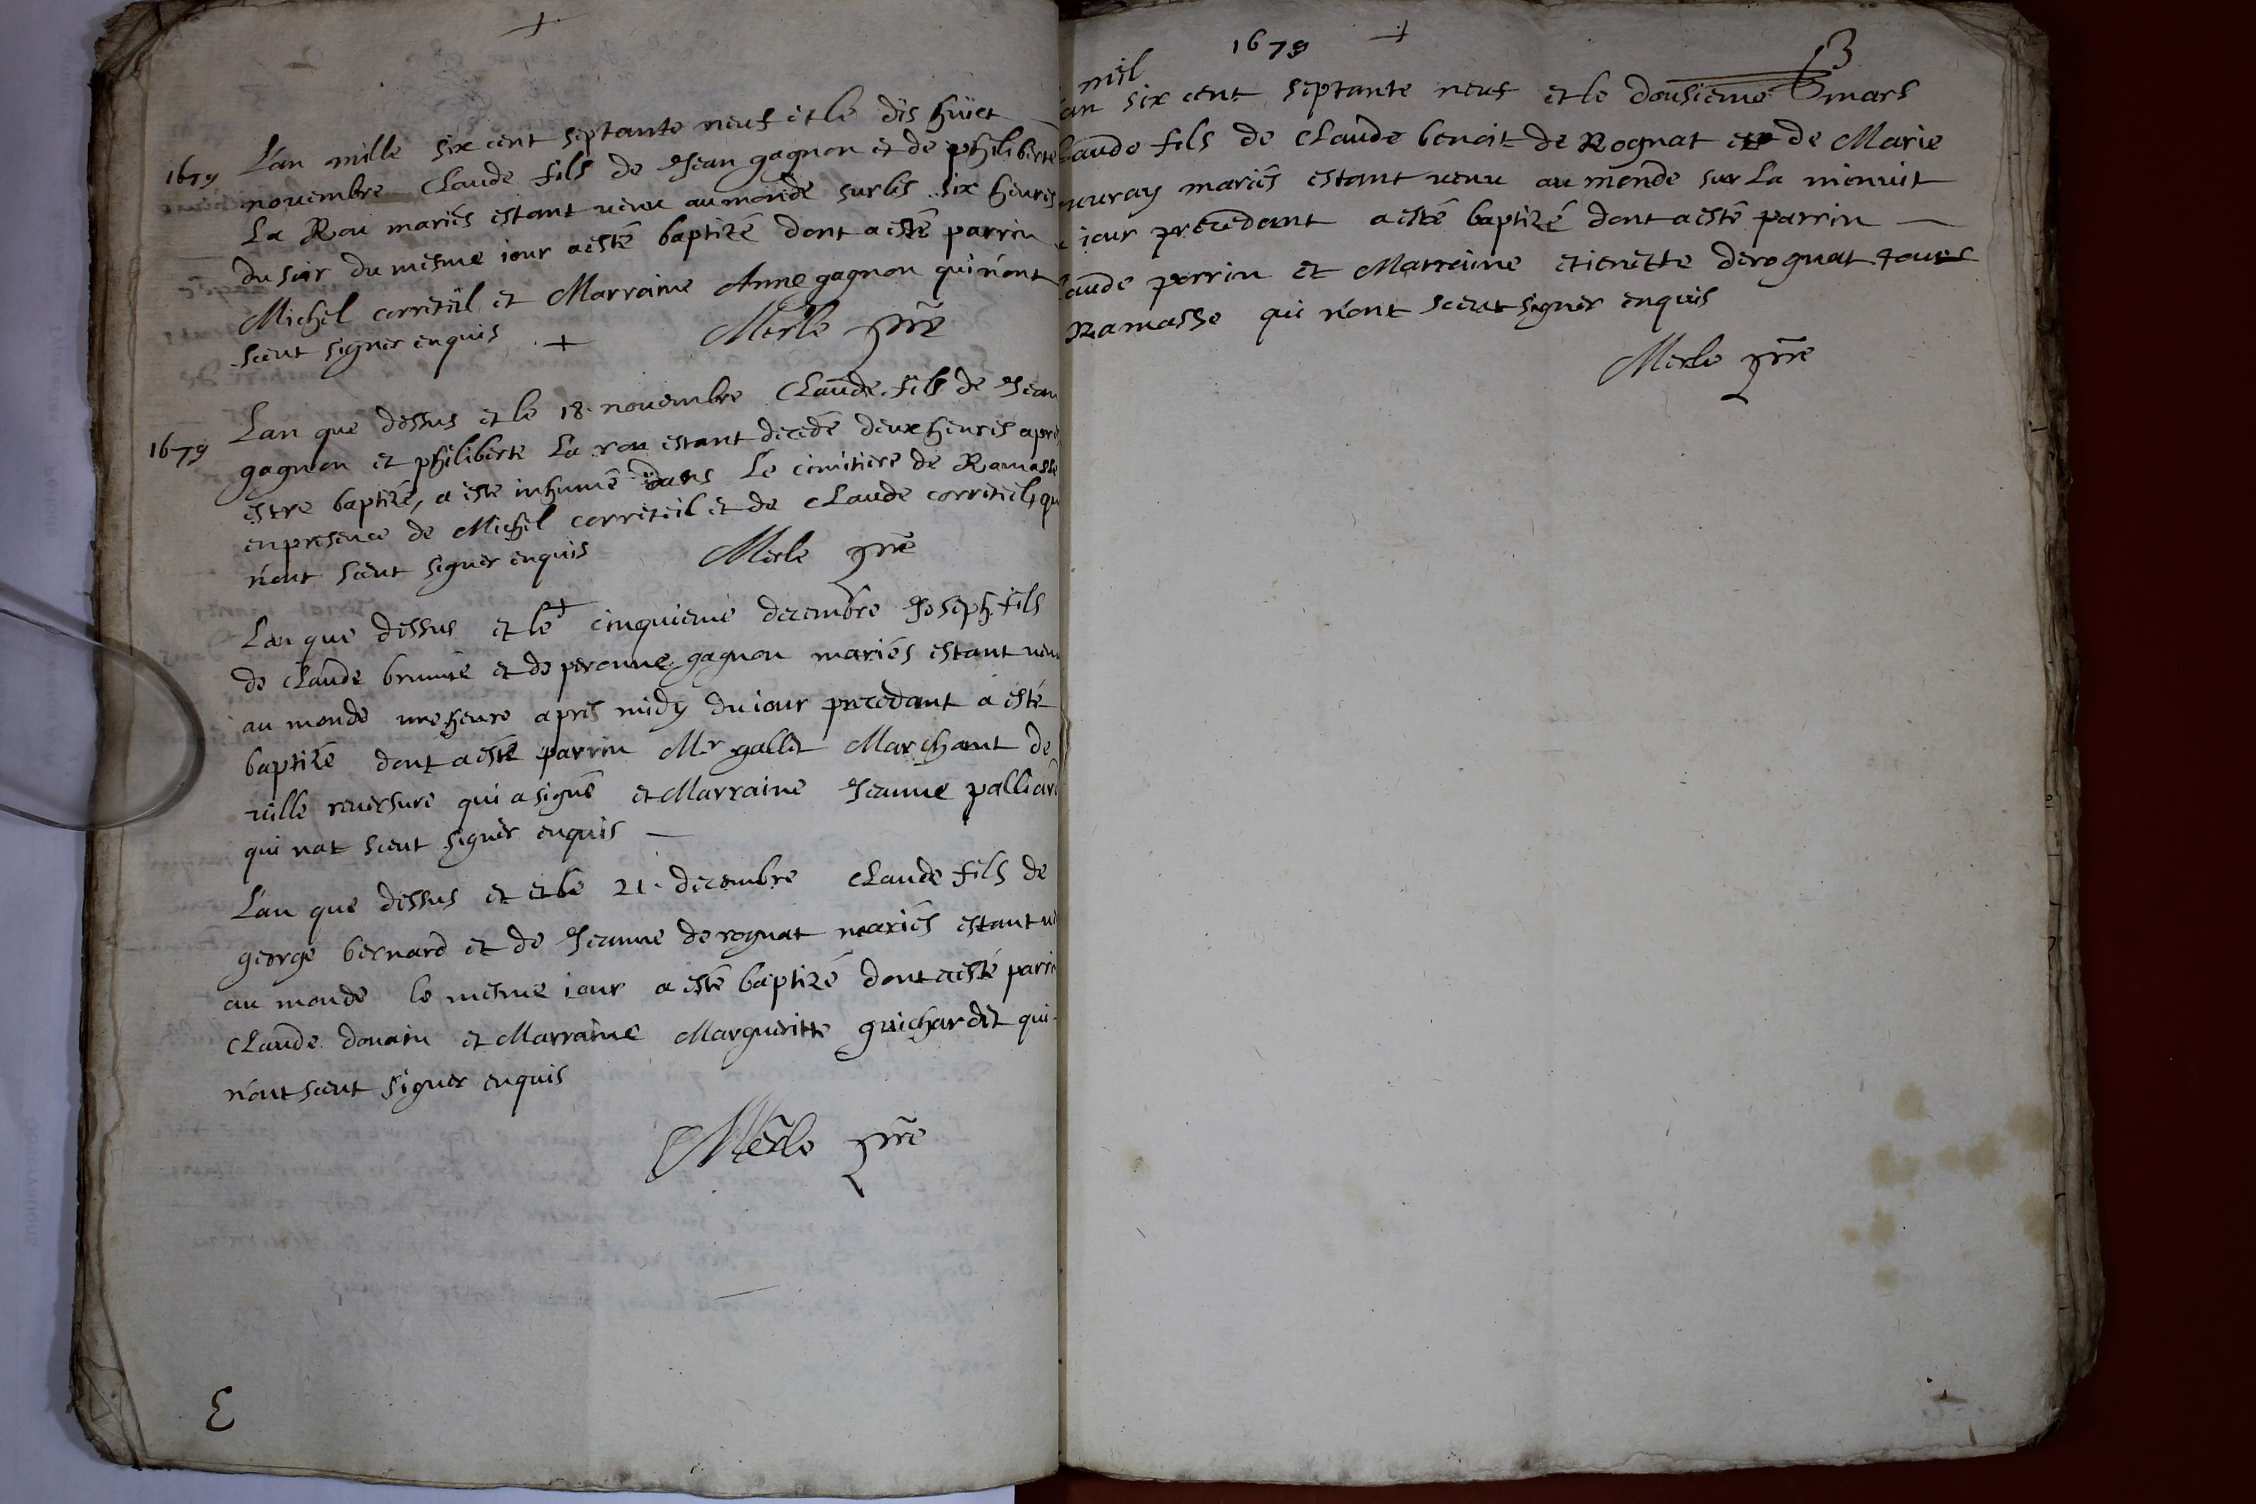 1679 L'an mille six cent septante neuf et le dis hüict
novembre Claude fils de Jean gagnon et de philiberte
La Rou mariés estant venu au monde sur les six heures
du soir du mesme iour a esté baptizé dont a esté parrin
Michel corretiil et Marraine Anne gagnon qui n'ont
sceut signer enquis + Merle ptre
1679 L'an que dessus et le 18. novembre Claude fils de Jean
gagnon et philiberte La rou estant decedé deux heures apres
estre baptizé, a este inhumé dans le cimitiere de Ramasse
en presence de Michel correteil et de Claude corretiel, qui
n'ont sceut signer enquis Merle ptre
L'an que dessus et le cinquieme decembre Joseph fils
de claude brunie et de peronne gagnon mariés estant venu
au monde une heure apres midy du iour precedant a esté
baptizé dont a esté parrin Mr gallet Marchant de
ville reversure qui a signé et Marraine Jeanne palliard
qui nat sceut signer enquis
L'an que dessus et et le 21. decembre Claude fils de
george bernard et de Jeanne derognat mariés estant
au monde le mesme iour a esté baptizé dont a esté parrin
Claude donain et Marraine Margueritte guichardet qui
n'ont sceut signer enquis
Merle ptre
1679 13
mil
an six cent septante neuf et le dousieme mars
laude fils de Claude benoit de Rognat et de Marie
mariés estant venu au monde sur La mienuit
iour precedant a esté baptizé dont a esté parrin
laude perrin et Marraine etienette derognat tous
Ramasse qui n'ont sceut signer enquis
Merle ptre